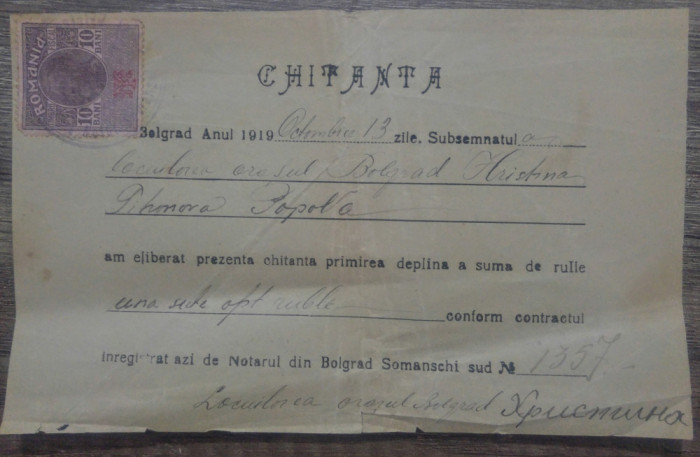 ROMÂNIA
10 BANI 10 BANI
CHITANTA
Bolgrad Anul 1919 Octombrie 13 zile. Subsemnatul a
locuitorea orasul Bolgrad Hristina
Tihonova Popova
am eliberat prezenta chitanta primirea deplina a suma de rulle
una sute opt ruble conform contractul
inregistrat azi de Notarul din Bolgrad Somanschi sud № 1357
Locuitorea orasul Bolgrad Христина